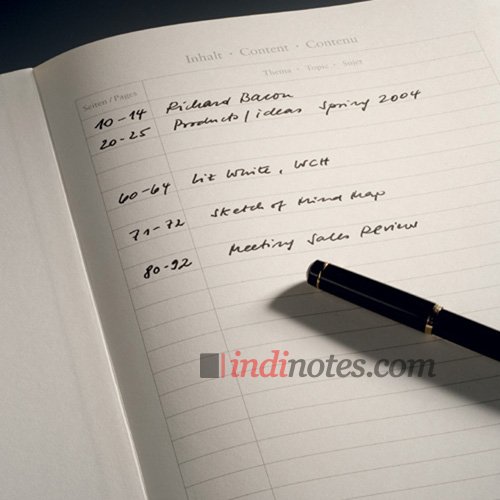 Inhalt · Content · Contenu
Seiten / Pages Thema · Topic · Sujet
10-14 Richard Bacon
20-25 Products/ideas Spring 2004
60-64 Liz White, WCH
71-72 Sketch of Mind Map
80-92 Meeting Sales Review
indinotes.com